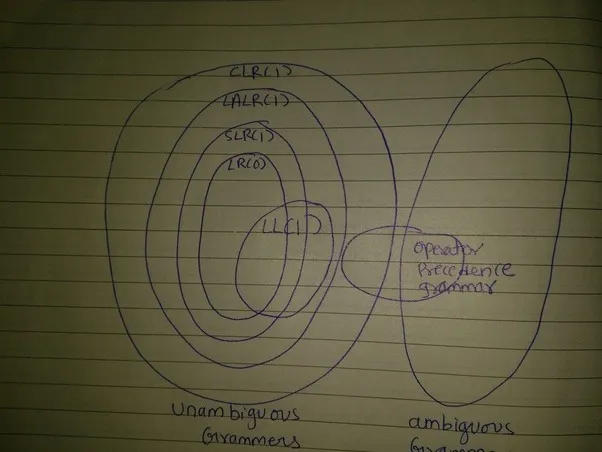 CLR(1)
LALR(1)
SLR(1)
LR(0)
LL(1)
operator
Precedence
grammar
Unambiguous
Grammers
ambiguous